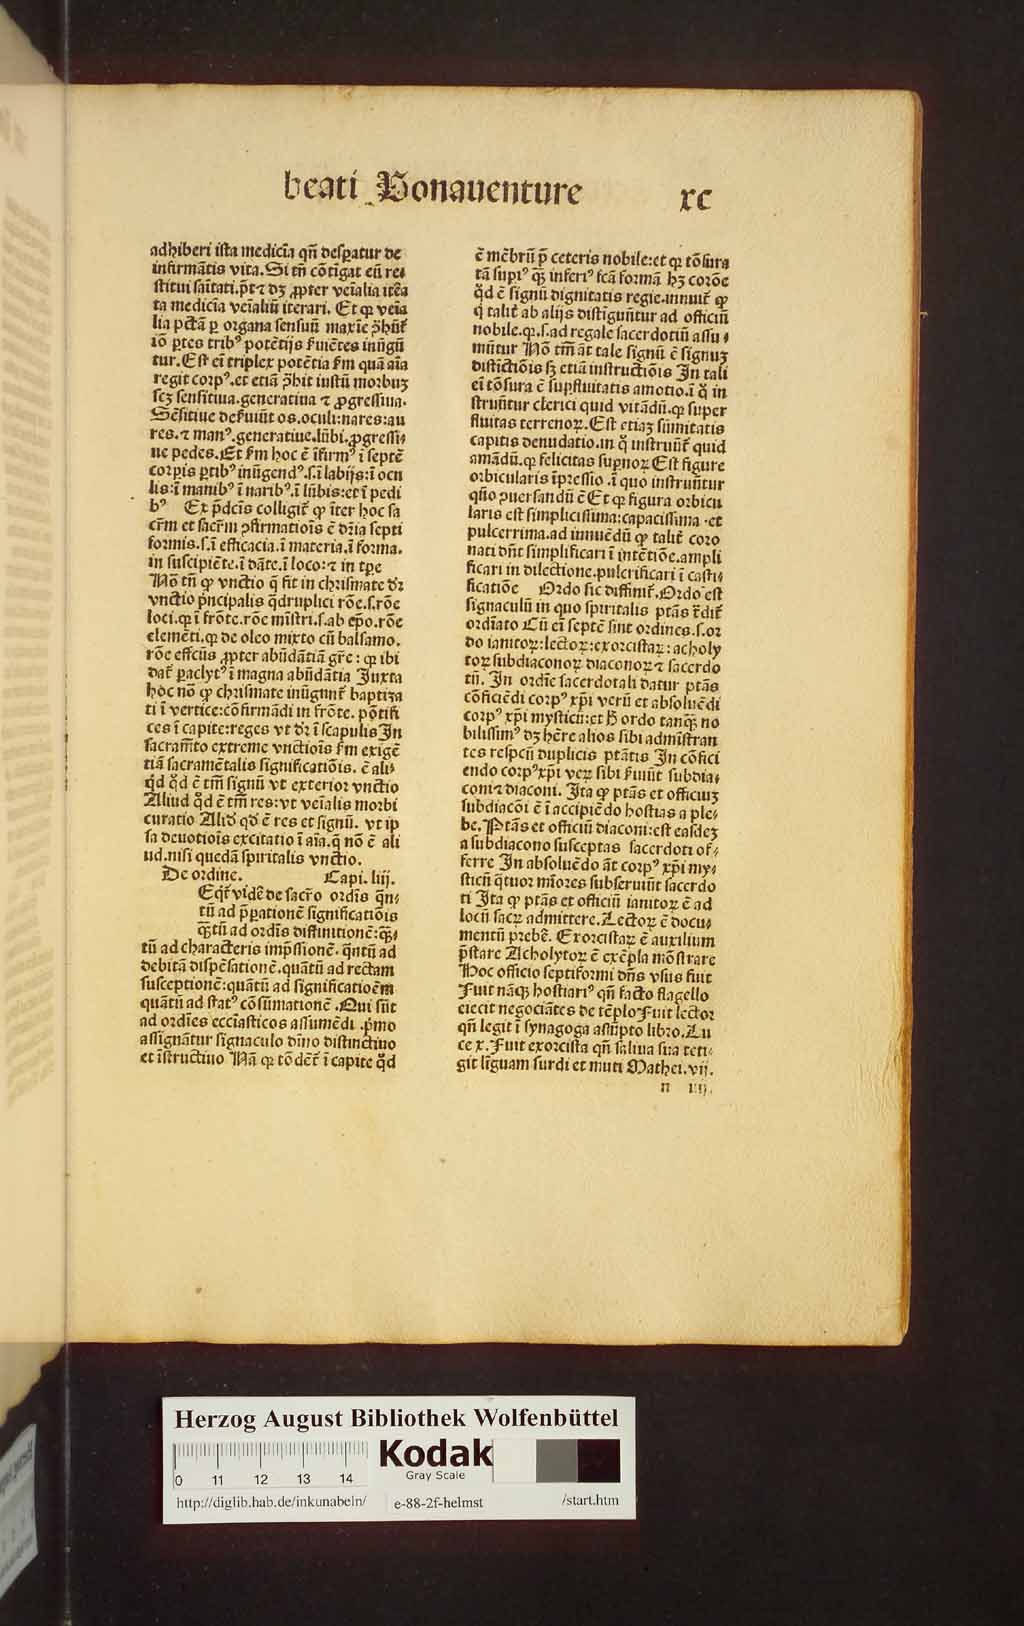 beati Bonauenture xc
adhiberi ista medicīa qñ desp̄atur de
infirmātis vita. Si tñ cōtīgat eū re⸗
stitui sāitati. p̄t ⁊ dʒ ꝓpter veīalia itēa
ta medicīa veīaliū iterari. Et qꝛ veīa
lia pctā ꝑ organa sensuū maxīe
iō ꝑtes tribꝰ potētijs ẜuiētes inūgū
tur. Est eī triplex potētia ẜm quā aīa
regit corpꝰ. et etiā ꝓhīt iustū morbuʒ
scʒ sensitiua. generatiua ⁊ ꝓgressiua.
Sēsitiue deẜuiūt os. oculi: nares: au
res. ⁊ manꝰ. generatiue. lūbi. ꝓgressi⸗
ue pedes. Et ẜm hoc ē īfirmꝰ ī septē
corꝑis ꝑtibꝰ inūgendꝰ. s. ī labijs: ī ocu
lis: ī manibꝰ ī naribꝰ. ī lūbis: et ī pedi
bꝰ Ex p̄dcīs colligit̄ ꝙ īter hoc sa
cr̄m et sacr̄m ꝯfirmatiōis ē dr̄ia septi
formis. s. ī efficacia. ī materia. ī forma.
in suscipiēte. ī dāte. ī loco: ⁊ in tꝑe
Nō tñ ꝙ vnctio q̄ fit in chrismate dr̄
vnctio p̄ncipalis q̄druplici rōe. s. rōe
loci. qꝛ ī frōte. rōe mīstri. s. ab ep̄o. rōe
elemēti. qꝛ de oleo mixto cū balsamo.
rōe effcūs ꝓpter abūdātiā gr̄e: qꝛ ibi
dat̄ ꝑaclytꝰ ī magna abūdātia Juxta
hoc nō ꝙ chrismate inūgunt̄ baptiza
ti ī vertice: cōfirmādi in frōte. pōtifi
ces ī capite: reges vt dr̄ ī scapulis In
sacram̄to extreme vnctiōis ẜm exigē
tiā sacramētalis significatiōis. ē ali⸗
q̊d q̊d ē tm̄ signū vt exterior vnctio
Aliud q̊d ē tm̄ res: vt veīalis morbi
curatio Aliđ qđ ē res et signū. vt ip̄
sa deuotiōis excitatio ī aīa. q̄ nō ē ali
ud. nisi quedā spiritalis vnctio.
De ordine. Capi. liij.
Eqr̄ vidē de sacr̄o ordīs q̄n⸗
tū ad p̄ꝑationē significatiōis
q̄ʒtū ad ordīs diffinitionē: q̄ʒ⸗
tū ad characteris imp̄ssionē. q̄ntū ad
debitā dispēsationē. quātū ad rectam
susceptionē: quātū ad significatioēm
quātū ad statꝰ cōsūmationē. Qui sūt
ad ordīes ecclīasticos assumēdi. p̄mo
assignātur signaculo dīno distinctiuo
et īstructiuo Nā qꝛ tōdēt̄ ī capite q̊d
ē mēbrū p̄ ceteris nobile: et qꝛ tōsura
tā supiꝰ q̄ʒ inferiꝰ fcā formā hʒ corōe
q̊d ē signū dignitatis regie. innuit̄ ꝙ
q̇ talit̄ ab alijs distīguūtur ad officiū
nobile. qꝛ. s. ad regale sacerdotiū assu⸗
mūtur Nō tm̄ āt tale signū ē signuʒ
distīctiōis sʒ etiā instructiōis In tali
eī tōsura ē suꝑfluitatis amotio. ī q̊ in
struūtur clerici quid vitādū. qꝛ super
fluitas terrenoꝝ. Est etiaʒ sūmitatis
capitis denudatio. in q̊ instruūt̄ quid
amādū. qꝛ felicitas suꝑnoꝝ Est figure
orbicularis īpressio. ī quo instruūtur
qūo ꝯuersandū ē Et qꝛ figura orbicu
laris est simplicissima: capacissima. et
pulcerrima. ad innuēdū ꝙ talit̄ coro
nati dn̄t simplificari ī intētiōe. ampli
ficari in dilectione. pulcrificari ī casti⸗
ficatiōe Ordo sic diffinit̄. Ordo est
signaculū in quo spiritalis ptās t̄dit̄
ordīato Cū eī septē sint ordines. s. or
do ianitoꝝ: lectoꝝ: exorcistaꝝ: acholy
toꝝ subdiaconoꝝ diaconoꝝ ⁊ sacerdo
tū. In ordīe sacerdotali datur ptās
cōficiēdi corpꝰ xp̄i verū et absoluēdi
corpꝰ xp̄i mysticū: et h̄ ordo tanq̄ʒ no
bilissimꝰ dʒ hēre alios sibi admīstran
tes respcū duplicis ptātis In cōfici
endo corpꝰ xp̄i veꝝ sibi ẜuiūt subdia⸗
coni ⁊ diaconi. Ita ꝙ ptās et officiuʒ
subdiacōi ē ī accipiēdo hostias a ple⸗
be. Ptās et officiū diaconi: est easdeʒ
a subdiacono susceptas sacerdoti of⸗
ferre In absoluēdo āt corpꝰ xp̄i my⸗
sticū q̄tuor mīores subseruiūt sacerdo
ti Ita ꝙ ptās et officiū ianitoꝝ ē ad
locū sacꝝ admittere. Lectoꝝ ē docu⸗
mentū prebē. Exorcistaꝝ ē auxilium
p̄stare Acholytoꝝ ē exēpla mōstrare
Hoc officio septiformi dn̄s vsus fuit
Fuit nāqʒ hostiariꝰ qñ facto flagello
eiecit negociātes de tēplo Fuit lector
qñ legit ī synagoga assūpto libro. Lu
ce x. Fuit exorcista qñ saliua sua teti⸗
git līguam surdi et muti Mathei. vij.
n iij.
Herzog August Bibliothek Wolfenbüttel
0 11 12 13 14
Kodak
Gray Scale
http://diglib.hab.de/inkunabeln/ e-88-2f-helmst /start.htm